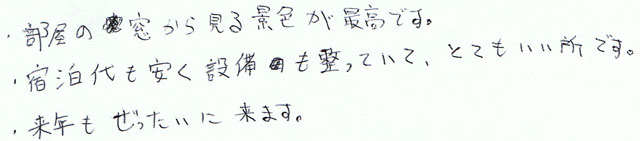 ・部屋の窓から見る景色が最高です。
・宿泊代も安く設備も整っていて、とてもいい所です。
・来年もぜったいに来ます。